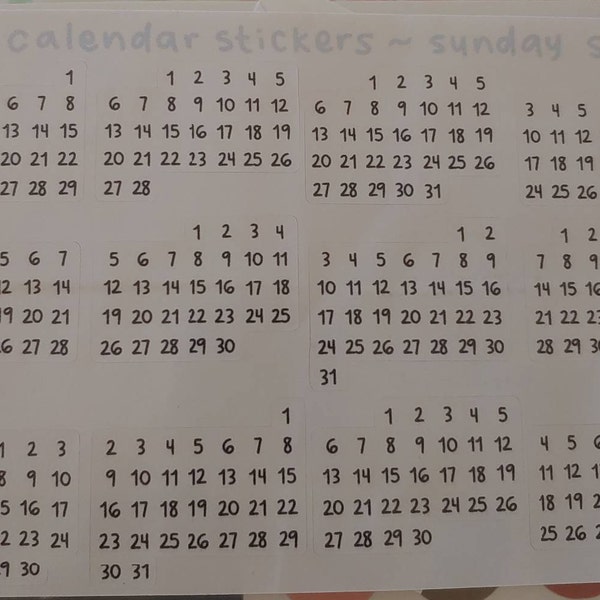 calendar stickers ~ sunday s
1
6 7 8
13 14 15
20 21 22
27 28 29
1 2 3 4 5
6 7 8 9 10 11 12
13 14 15 16 17 18 19
20 21 22 23 24 25 26
27 28
1 2 3 4 5
6 7 8 9 10 11 12
13 14 15 16 17 18 19
20 21 22 23 24 25 26
27 28 29 30 31
3 4 5
10 11 12
17 18 19
24 25 26
5 6 7
12 13 14
19 20 21
26 27 28
1 2 3 4
5 6 7 8 9 10 11
12 13 14 15 16 17 18
19 20 21 22 23 24 25
26 27 28 29 30
1 2
3 4 5 6 7 8 9
10 11 12 13 14 15 16
17 18 19 20 21 22 23
24 25 26 27 28 29 30
31
1 2
7 8 9
14 15 16
21 22 23
28 29 30
1 2 3
8 9 10
15 16 17
22 23 24
29 30
1
2 3 4 5 6 7 8
9 10 11 12 13 14 15
16 17 18 19 20 21 22
23 24 25 26 27 28 29
30 31
1 2 3 4 5
6 7 8 9 10 11 12
13 14 15 16 17 18 19
20 21 22 23 24 25 26
27 28 29 30
4 5 6
11 12 13
18 19 2
25 26 2